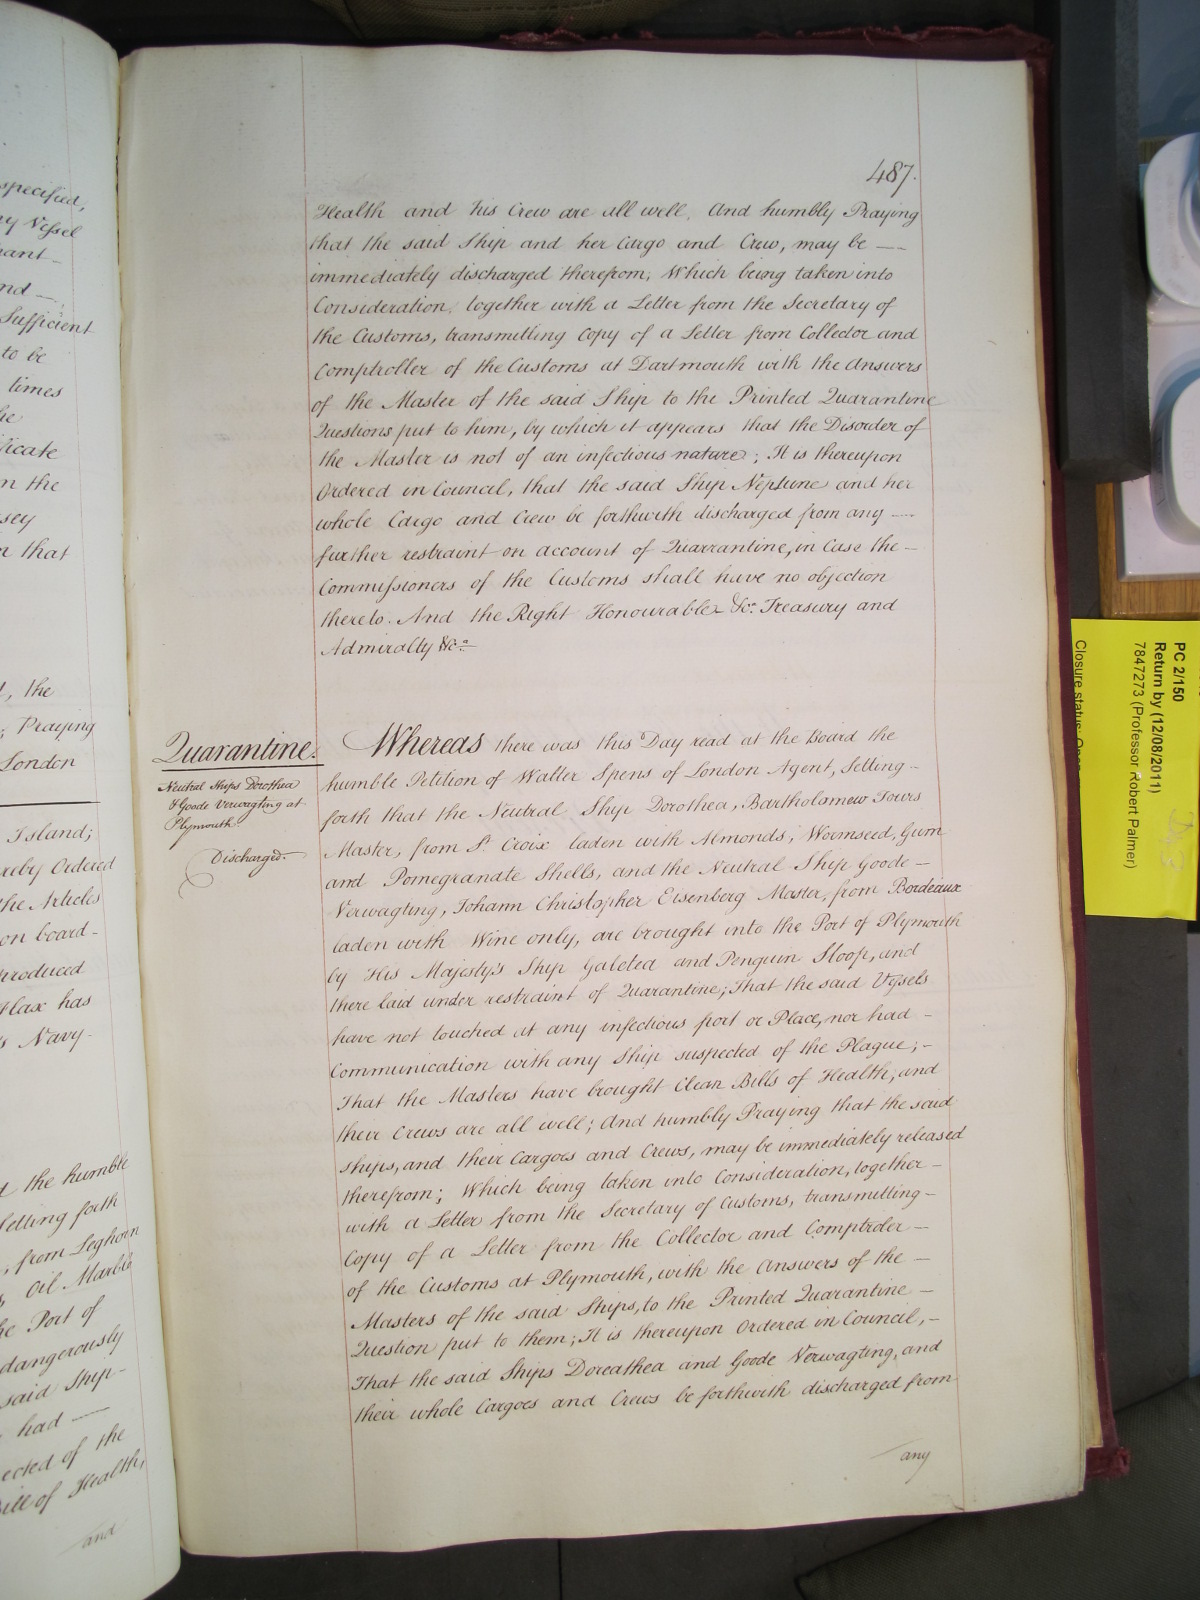 specified,
Vessel
Sufficient
to be
times
the
the
that
, the
Praying
London
Island;
Ordered
the Articles
on board -
produced
Flax has
Navy -
the humble
Setting forth
, from Leghorn
, Oil Marble
Port of
dangerously
said Ship -
had —
of the
Bill of Health,
and
487.
Health and his Crew are all well, And humbly Praying
that the said Ship and her Cargo and Crew, may be —
immediately discharged therefrom; Which being taken into
Consideration, together with a Letter from the Secretary of
the Customs, transmitting Copy of a Letter from Collector and
Comptroller of the Customs at Dartmouth with the Answers
of the Master of the said Ship to the Printed Quarantine
Questions put to him, by which it appears that the Disorder of
the Master is not of an infectious nature; It is thereupon
Ordered in Council, that the said Ship Neptune and her
whole Cargo and Crew be forthwith discharged from any —
further restraint on account of Quarrantine, in Case the —
Commissioners of the Customs shall have no objection
thereto. And the Right Honourable &c. Treasury and
Admiralty &ca.
Quarantine.
Neutral Ships Dorothea
& Goode Verwagting at
Plymouth.
Discharged.
Whereas there was this Day read at the Board the
humble Petition of Walter Spens of London Agent, Setting -
forth that the Neutral Ship Dorothea, Bartholomew Tours
Master, from St. Croix laden with Almonds, Wormseed, Gum
and Pomegranate Shells, and the Neutral Ship Goode —
Verwagting, Johann Christopher Eisenberg Master, from Bordeaux
laden with Wine only, are brought into the Port of Plymouth
by His Majesty's Ship Galetea and Penguin Sloop, and
there laid under restraint of Quarantine; That the said Vessels
have not touched at any infectious port or Place, nor had -
Communication with any Ship suspected of the Plague; -
That the Masters have brought Clean Bills of Health, and
their Crews are all well; And humbly Praying that the said
Ships, and their Cargoes and Crews, may be immediately released
therefrom; Which being taken into Consideration, together -
with a Letter from the Secretary of Customs, transmitting -
Copy of a Letter from the Collector and Comptroler —
of the Customs at Plymouth, with the Answers of the —
Masters of the said Ships, to the Printed Quarantine —
Question put to them; It is thereupon Ordered in Council, -
That the said Ships Doreathea and Goode Verwagting, and
their whole Cargoes and Crews be forthwith discharged from
any
PC 2/150
Return by (12/08/2011)
7847273 (Professor Robert Palmer)
Closure status: Open